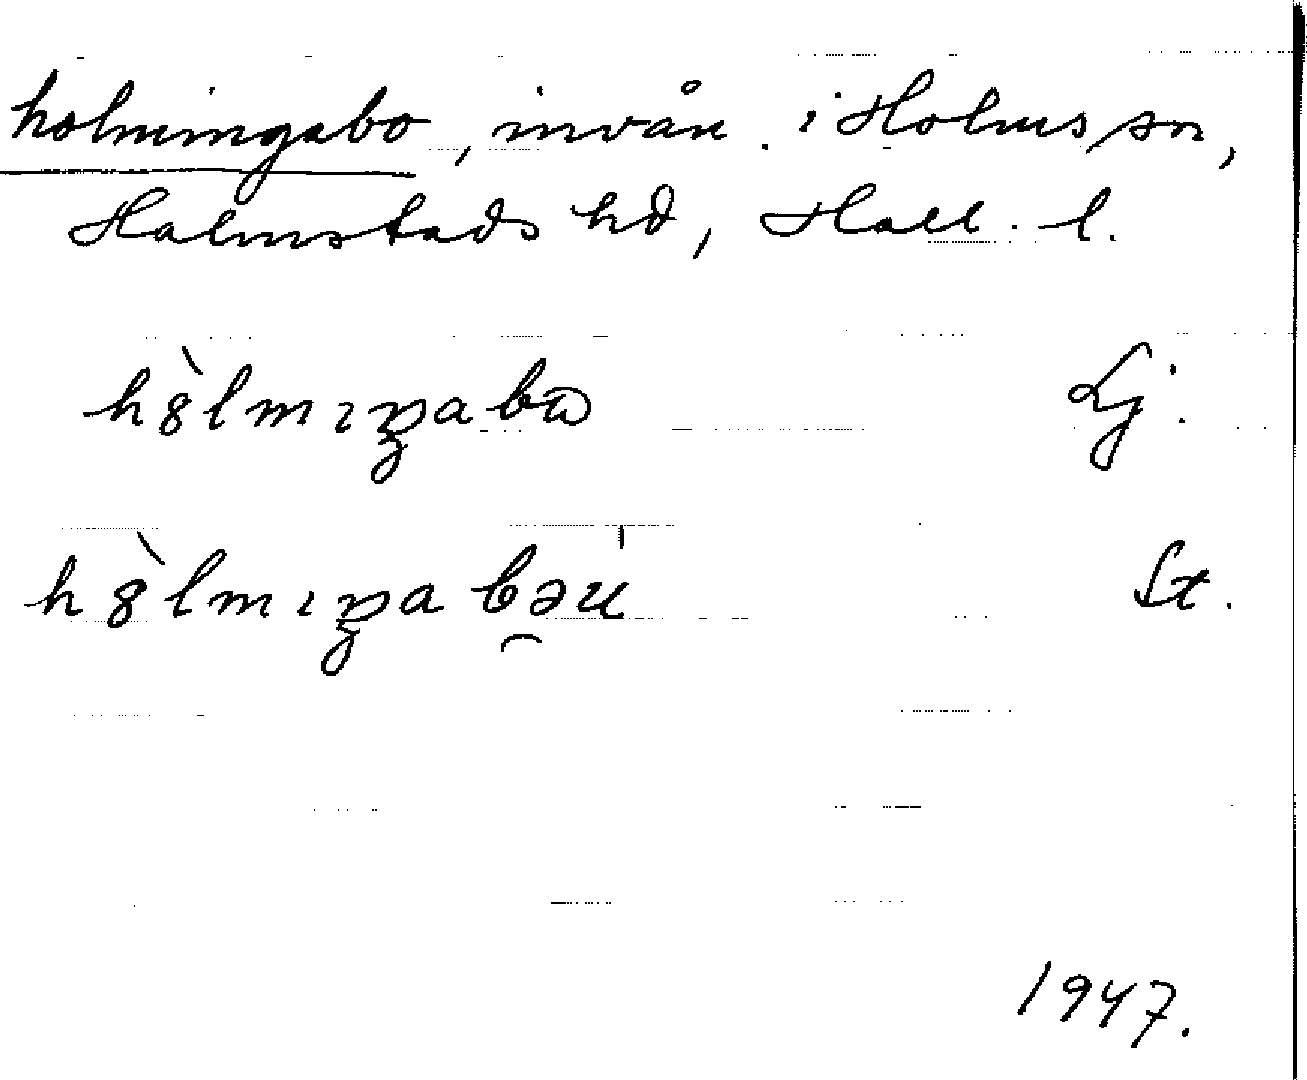 holmingabo, invån. i Holms sn,
Halmstads hd, Hall. l.
hòlmıŋabω Lj.
hòlmıŋabəu St.
1947.